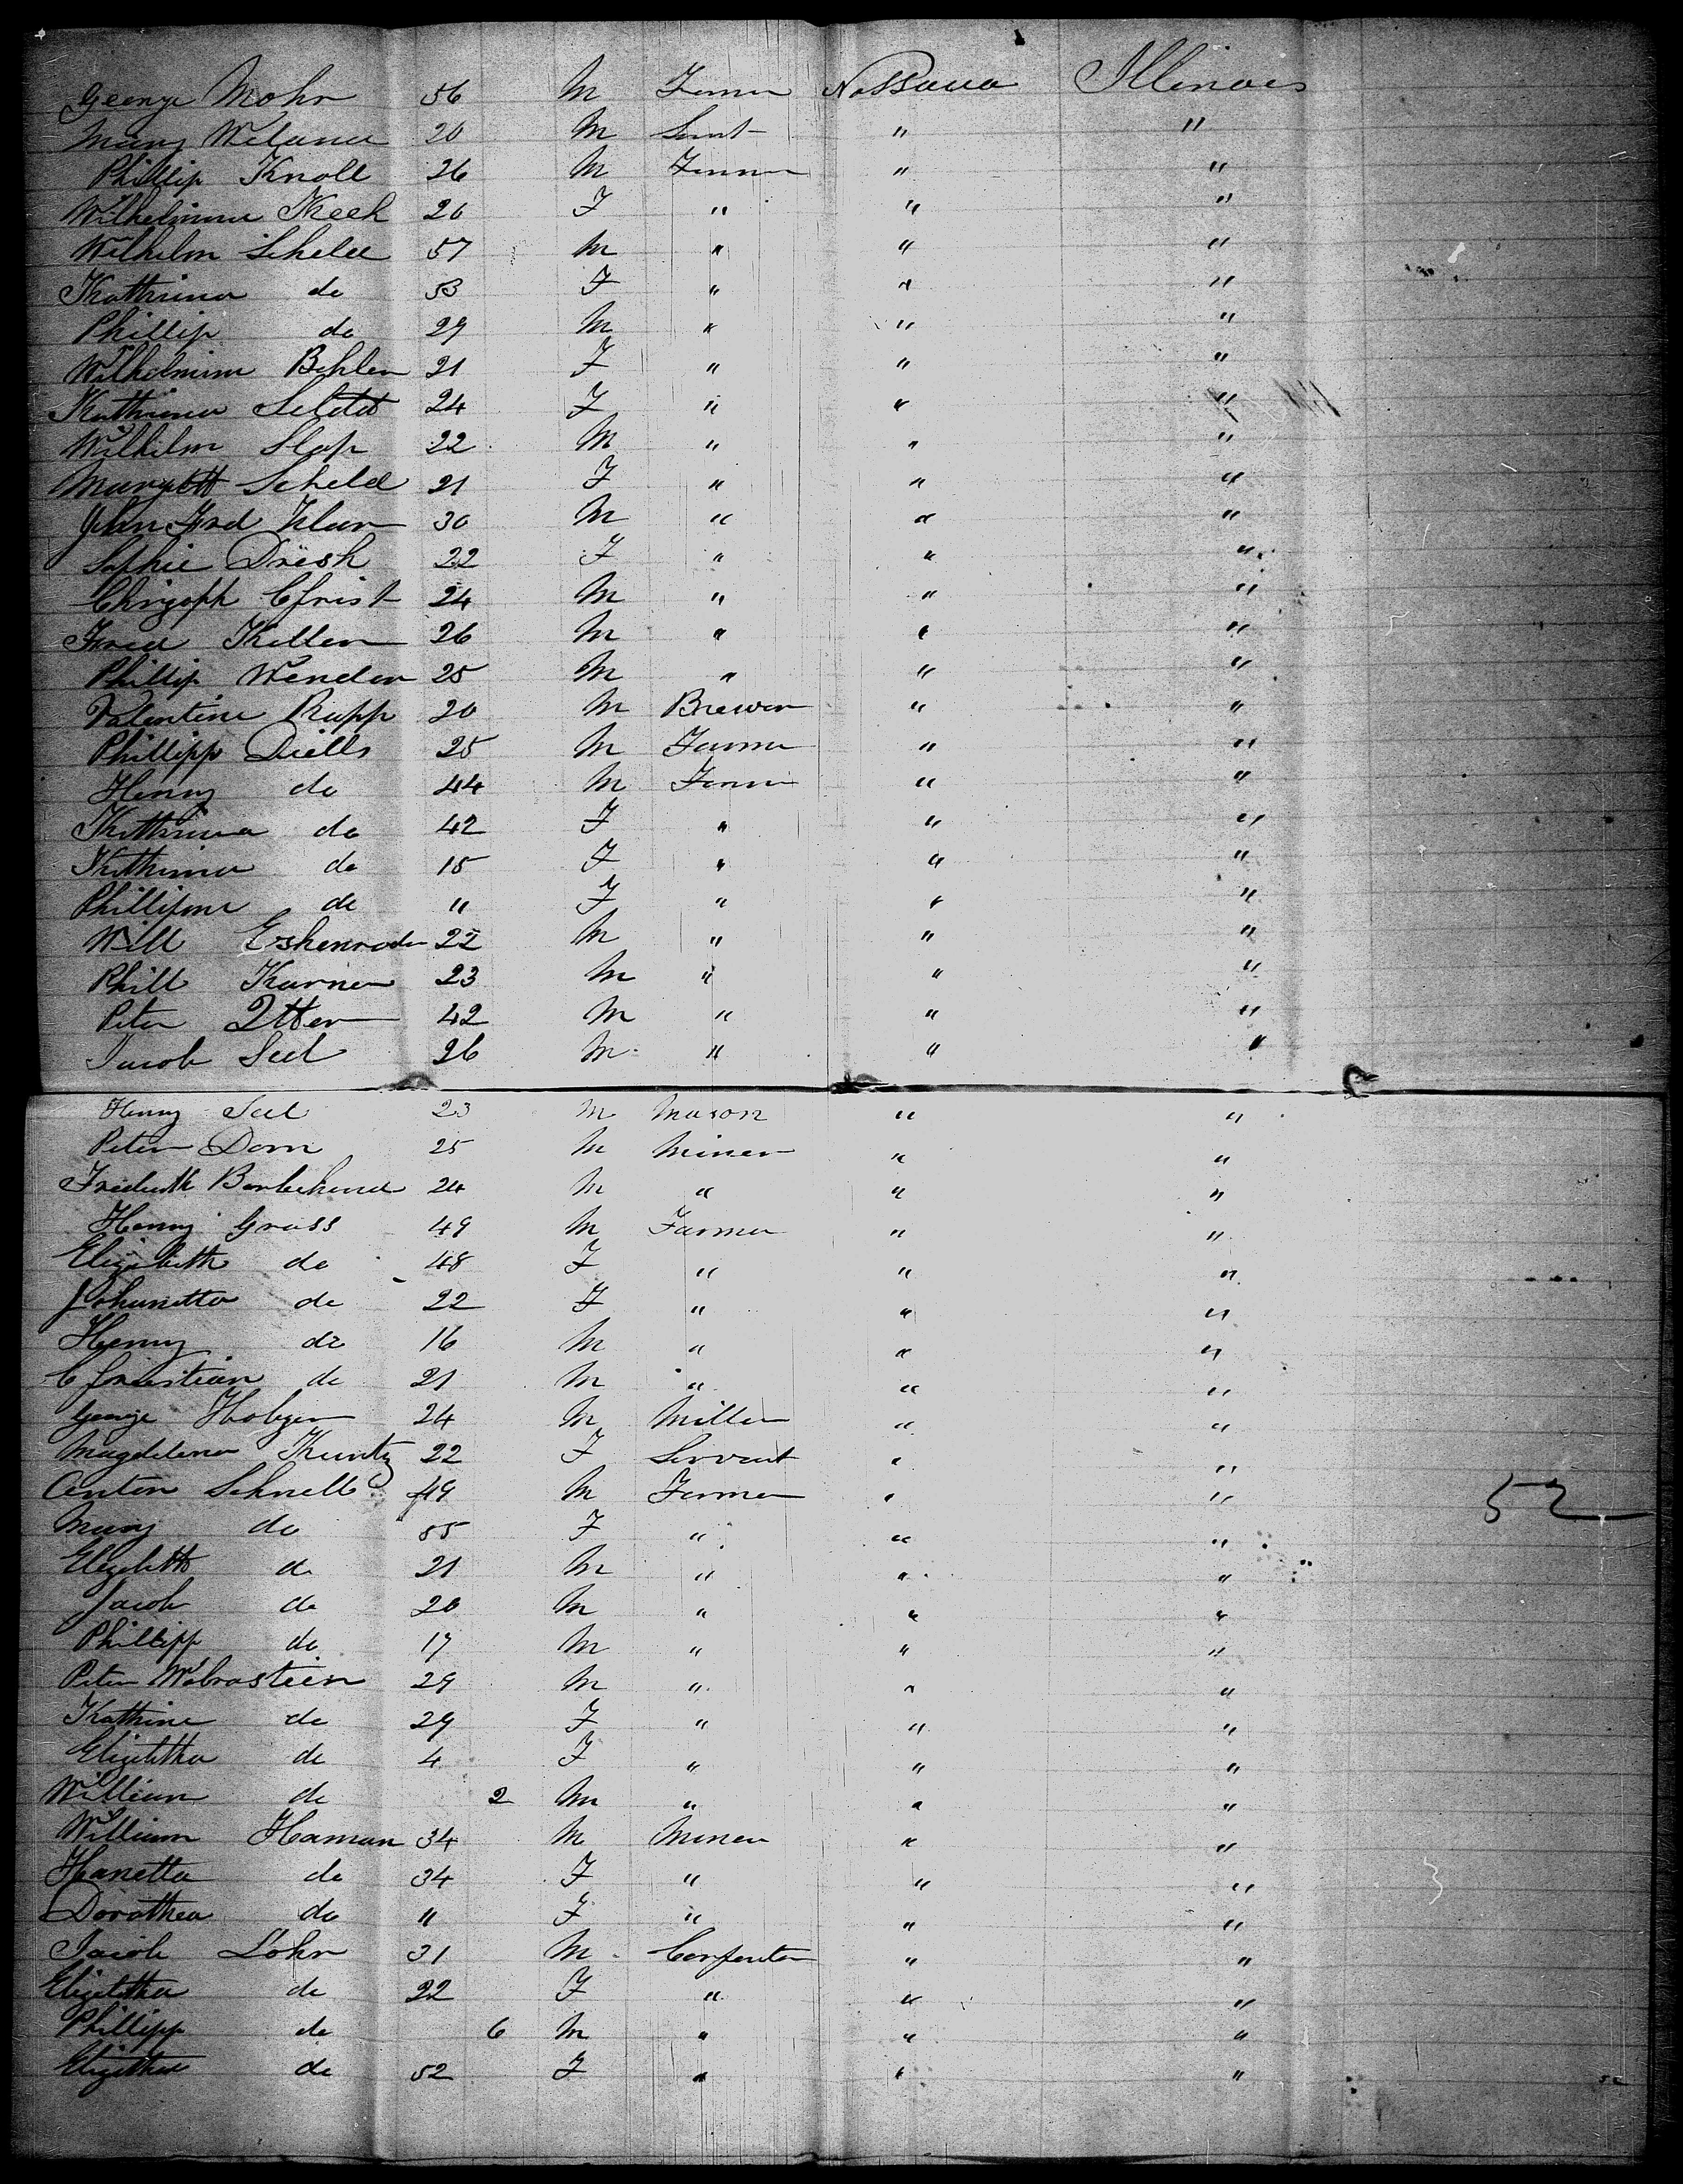 George Mohr 56 M Farmer Nassaua Illinois
Mary Weland 20 M Servt " "
Phillip Knoll 26 M Farmer " "
Wilhelmina Keeh 26 F " " "
Wilhelm Scheld 57 M " " "
Kathrina do 53 F " " "
Phillip do 29 M " " "
Wilhelmina Behlen 21 F " " "
Kathrina 24 F " " "
Wilhelm Slap 22 M " " "
Margett Scheld 21 F " " "
John Frd Klar 30 M " " "
Sophie Driesh 22 F " " "
Chrigoph Christ 24 M " " "
Fred Keller 26 M " " "
Phillip Wender 25 M " " "
Valentine Rupp 20 M Brewer " "
Phillipp Diells 25 M Farmer " "
Henry do 44 M Farmer " "
Kathrina do 42 F " " "
Kathrina do 15 F " " "
Phillipine do 11 F " " "
Will Eshenroder 22 M " " "
Phill Karner 23 M " " "
Peter Itter 42 M " " "
Jacob Seel 26 M " " "
Henry Seel 23 M Mason " "
Peter Dorn 25 M Miner " "
Fredeeth Barbehena 24 M " " "
Henry Grass 49 M Farmer " "
Elizabeth do 48 F " " "
Johanetta do 22 F " " "
Henry do 16 M " " "
Christian do 21 M " " "
George Hobger 24 M Miller " "
Magdelena Kuntz 22 F Servant " "
Anton Schnell 49 M Farmer " "
52
Mary do 55 F " " "
Elizabetth do 21 M " " "
Jacob do 20 M " " "
Phillipp do 17 M " " "
Peter Wabrastein 29 M " " "
Kathrine do 29 F " " "
Elizebtha do 4 F " " "
William do 2 M " " "
William Haman 34 M Miner " "
Hanetta do 34 F " " "
Dorothea do 11 F " " "
Jacob Lohr 31 M Carpenter " "
Elizabtha do 22 F " " "
Phillipp do 6 M " " "
Elizabtha do 52 F " " "